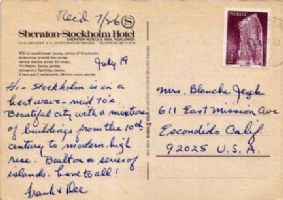 Rec'd 7/26
Sheraton-Stockholm Hotel
SHERATON HOTELS & INNS, WORLDWIDE
July 19
Hi - Stockholm is in a
heat wave - mid 70's.
Beautiful city with a mixture
of buildings from the 10th
century to modern high
rise. Built on a series of
islands. Love to all!
Frank & Dee
Mrs. Blanche Jeyk
611 East Mission Ave
Escondido Calif
92025 U.S.A.
SVERIGE